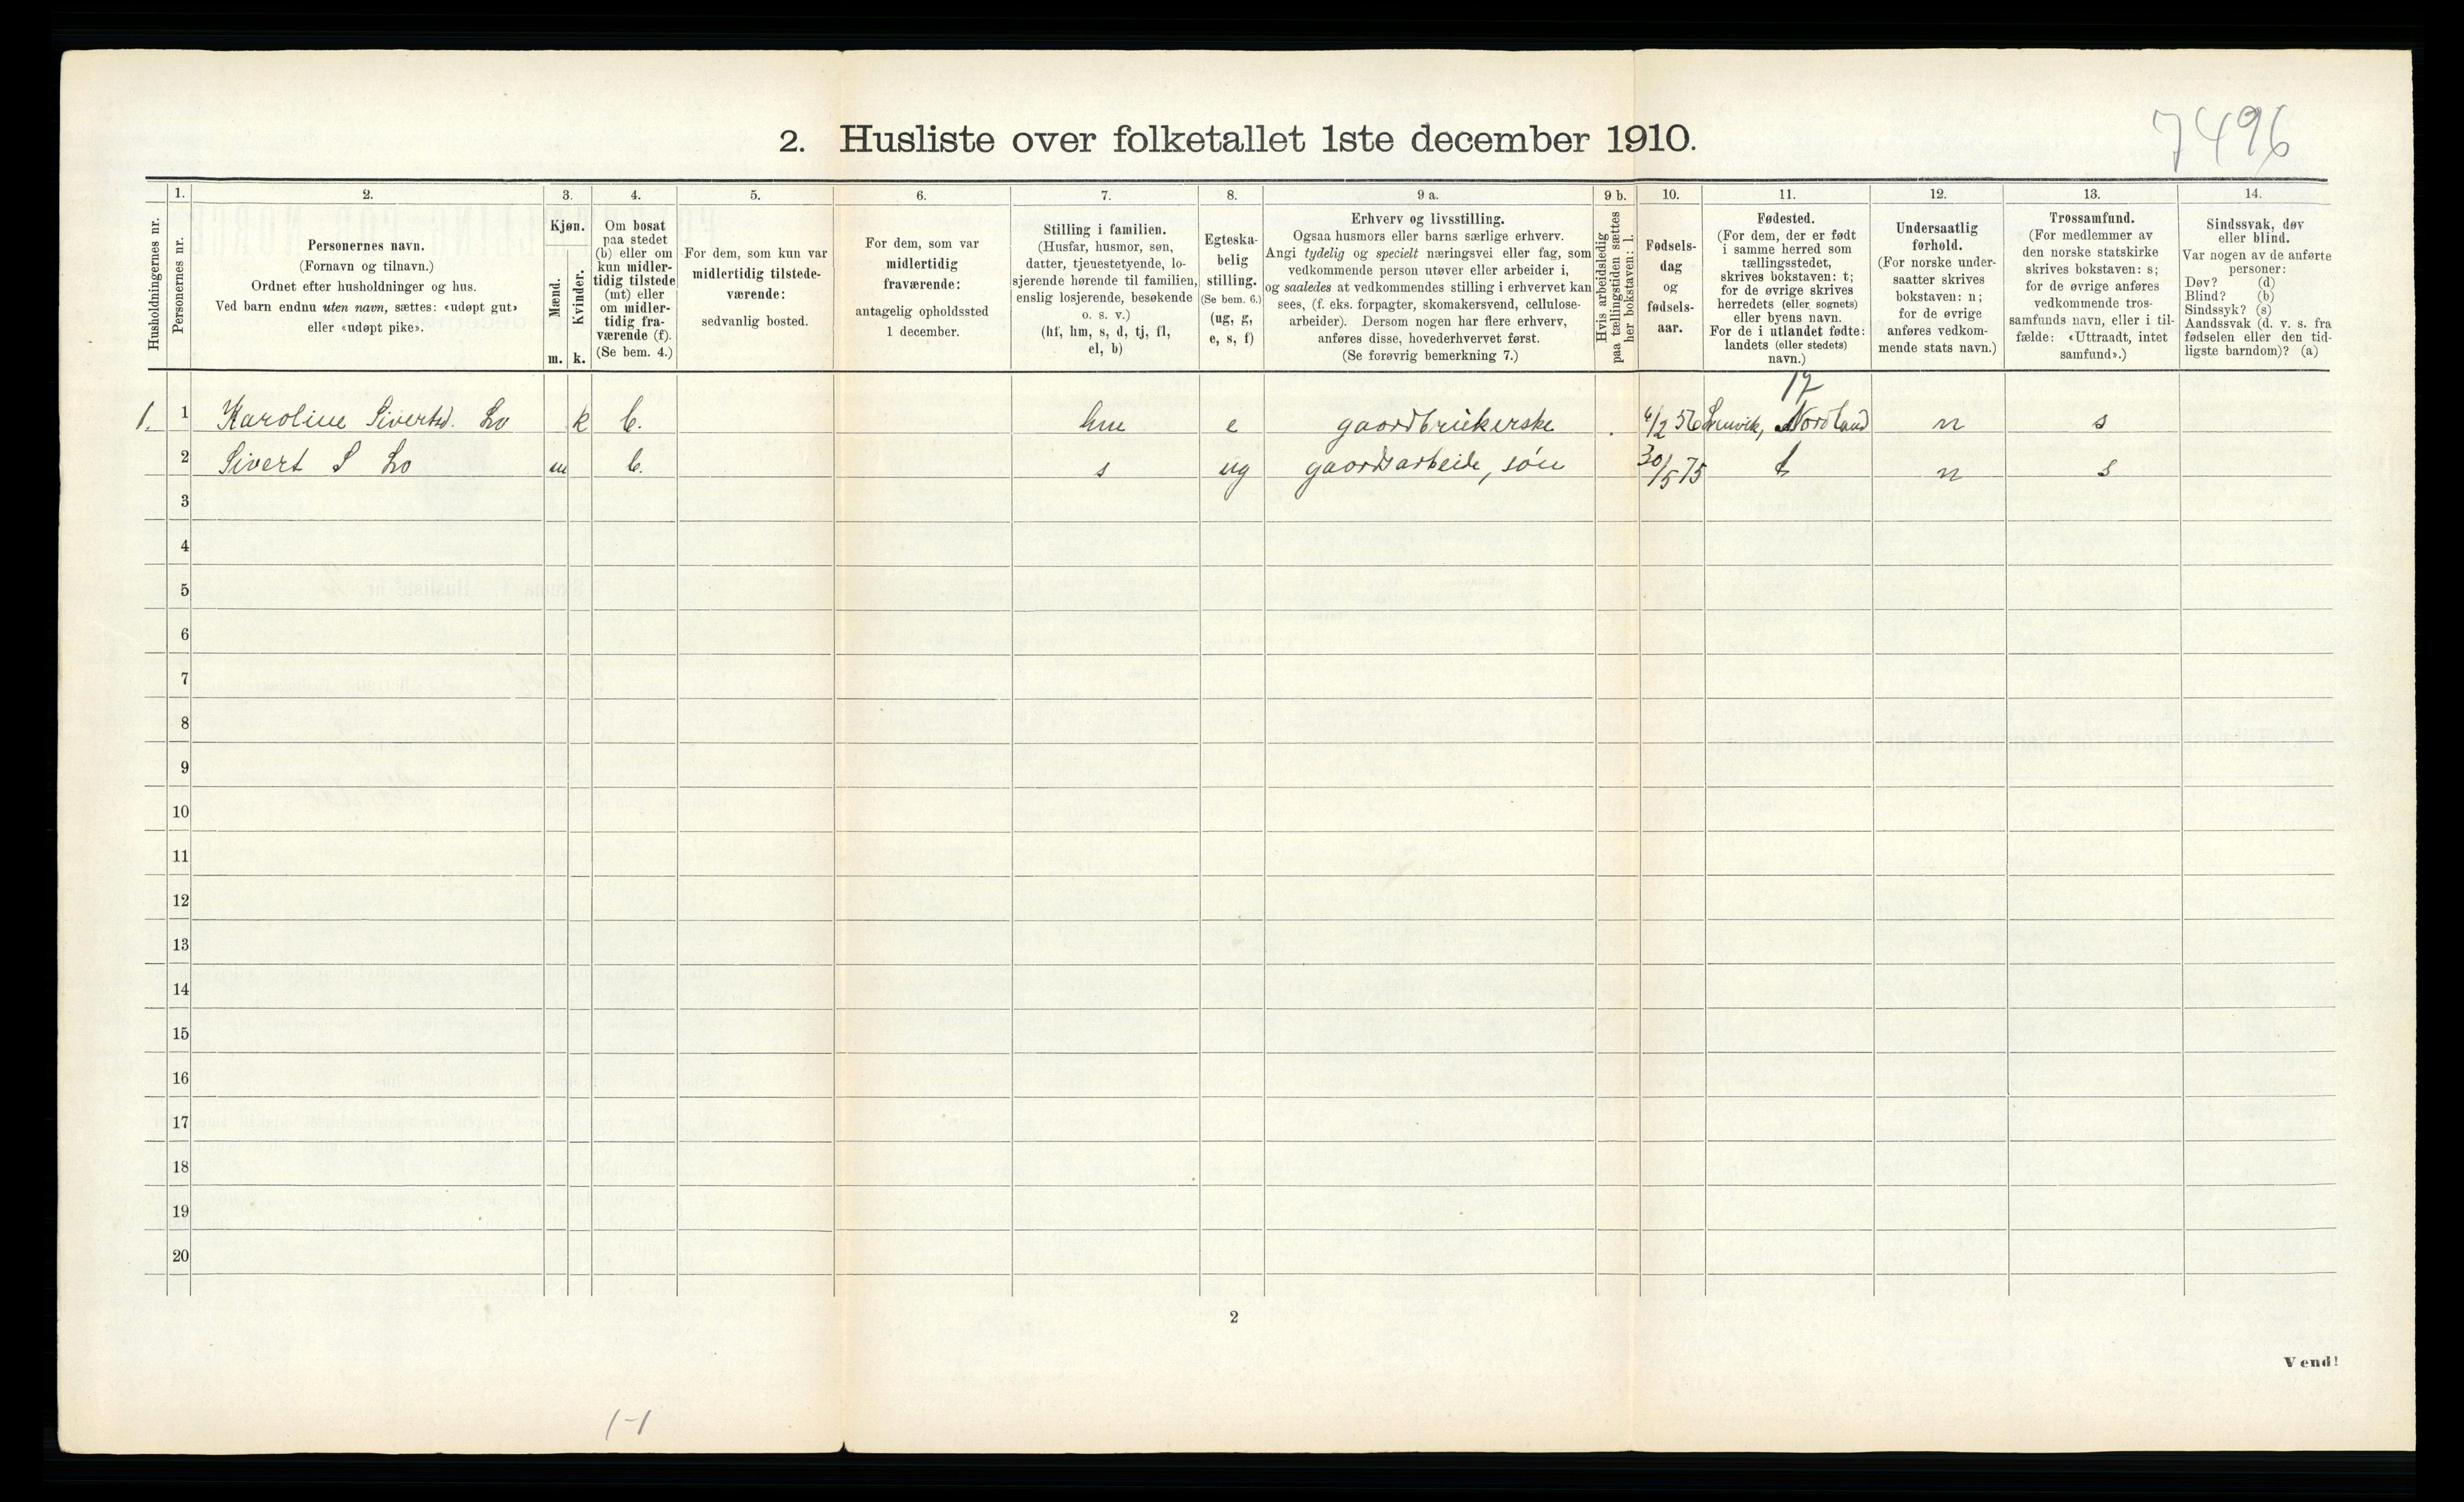 7496
2. Husliste over folketallet 1ste december 1910.
Husholdningernes nr.
1.
Personernes nr.
2.
Personernes navn.
(Fornavn og tilnavn.)
Ordnet efter husholdninger og hus.
Ved barn endnu uten navn, sættes: «udøpt gut»
eller «udøpt pike».
3.
Kjøn.
Mænd.
Kvinder.
m. k.
4.
Om bosat
paa stedet
(b) eller om
kun midler-
tidig tilstede
(mt) eller
om midler-
tidig fra-
værende (f).
(Se bem. 4.)
5.
For dem, som kun var
midlertidig tilstede-
værende:
sedvanlig bosted.
6.
For dem, som var
midlertidig
fraværende:
antagelig opholdssted
1 december.
7.
Stilling i familien.
(Husfar, husmor, søn,
datter, tjenestetyende, lo-
sjerende hørende til familien,
enslig losjerende, besøkende
o. s. v.)
(hf, hm, s, d, tj, fl,
el, b)
8.
Egteska-
belig
stilling.
(Se bem. 6.)
(ug, g,
e, s, f)
9 a.
Erhverv og livsstilling.
Ogsaa husmors eller barns særlige erhverv.
Angi tydelig og specielt næringsvei eller fag, som
vedkommende person utøver eller arbeider i,
og saaledes at vedkommendes stilling i erhvervet kan
sees, (f. eks. forpagter, skomakersvend, cellulose-
arbeider). Dersom nogen har flere erhverv,
anføres disse, hovederhvervet først.
(Se forøvrig bemerkning 7.)
9 b.
Hvis arbeidsledig
paa tællingstiden sættes
her bokstaven: l.
10.
Fødsels-
dag
og
fødsels-
aar.
11.
Fødested.
(For dem, der er født
i samme herred som
tællingsstedet,
skrives bokstaven: t;
for de øvrige skrives
herredets (eller sognets)
eller byens navn.
For de i utlandet fødte:
landets (eller stedets)
navn.)
12.
Undersaatlig
forhold.
(For norske under-
saatter skrives
bokstaven: n;
for de øvrige
anføres vedkom-
mende stats navn.)
13.
Trossamfund.
(For medlemmer av
den norske statskirke
skrives bokstaven: s;
for de øvrige anføres
vedkommende tros-
samfunds navn, eller i til-
fælde: «Uttraadt, intet
samfund».)
14.
Sindssvak, døv
eller blind.
Var nogen av de anførte
personer:
Døv? (d)
Blind? (b)
Sindssyk? (s)
Aandssvak (d. v. s. fra
fødselen eller den tid-
ligste barndom)? (a)
17
1. 1 Karoline Sivertsd. Lo k b. hm e gaardbrukerske 4/2 56 Lenvik, Nordland n s
2 Sivert S Lo m b. s ug gaardsarbeide, søn 30/5 75 t n s
3
4
5
6
7
8
9
10
11
12
13
14
15
16
17
18
19
20
2
Vend!
1-1